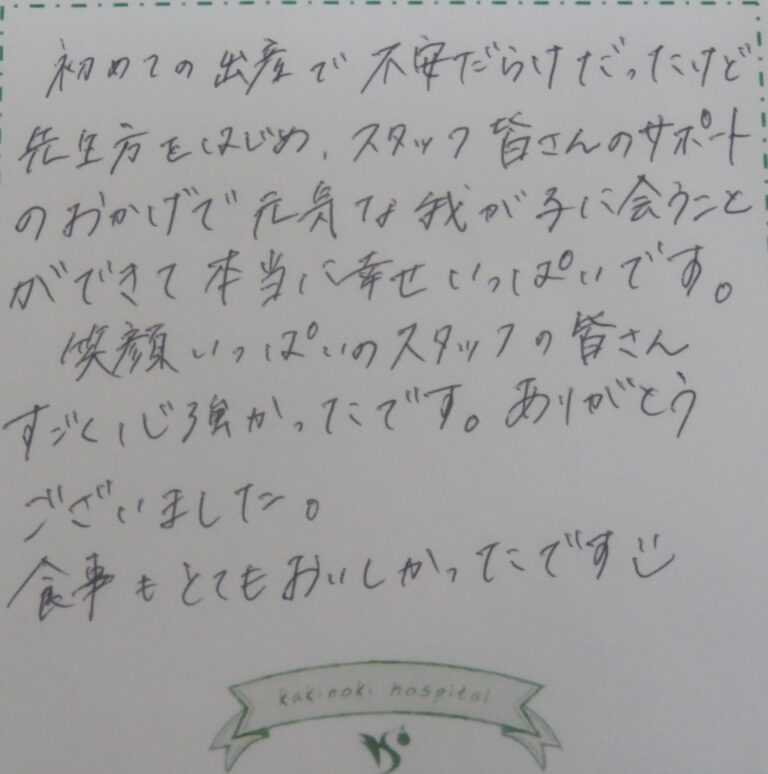 初めての出産で不安だらけだったけど
先生方をはじめ、スタッフ皆さんのサポート
のおかげで元気な我が子に会うこと
ができて本当に幸せいっぱいです。
笑顔いっぱいのスタッフの皆さん
すごく心強かったです。ありがとう
ございました。
食事もとてもおいしかったです
kakinoki hospital